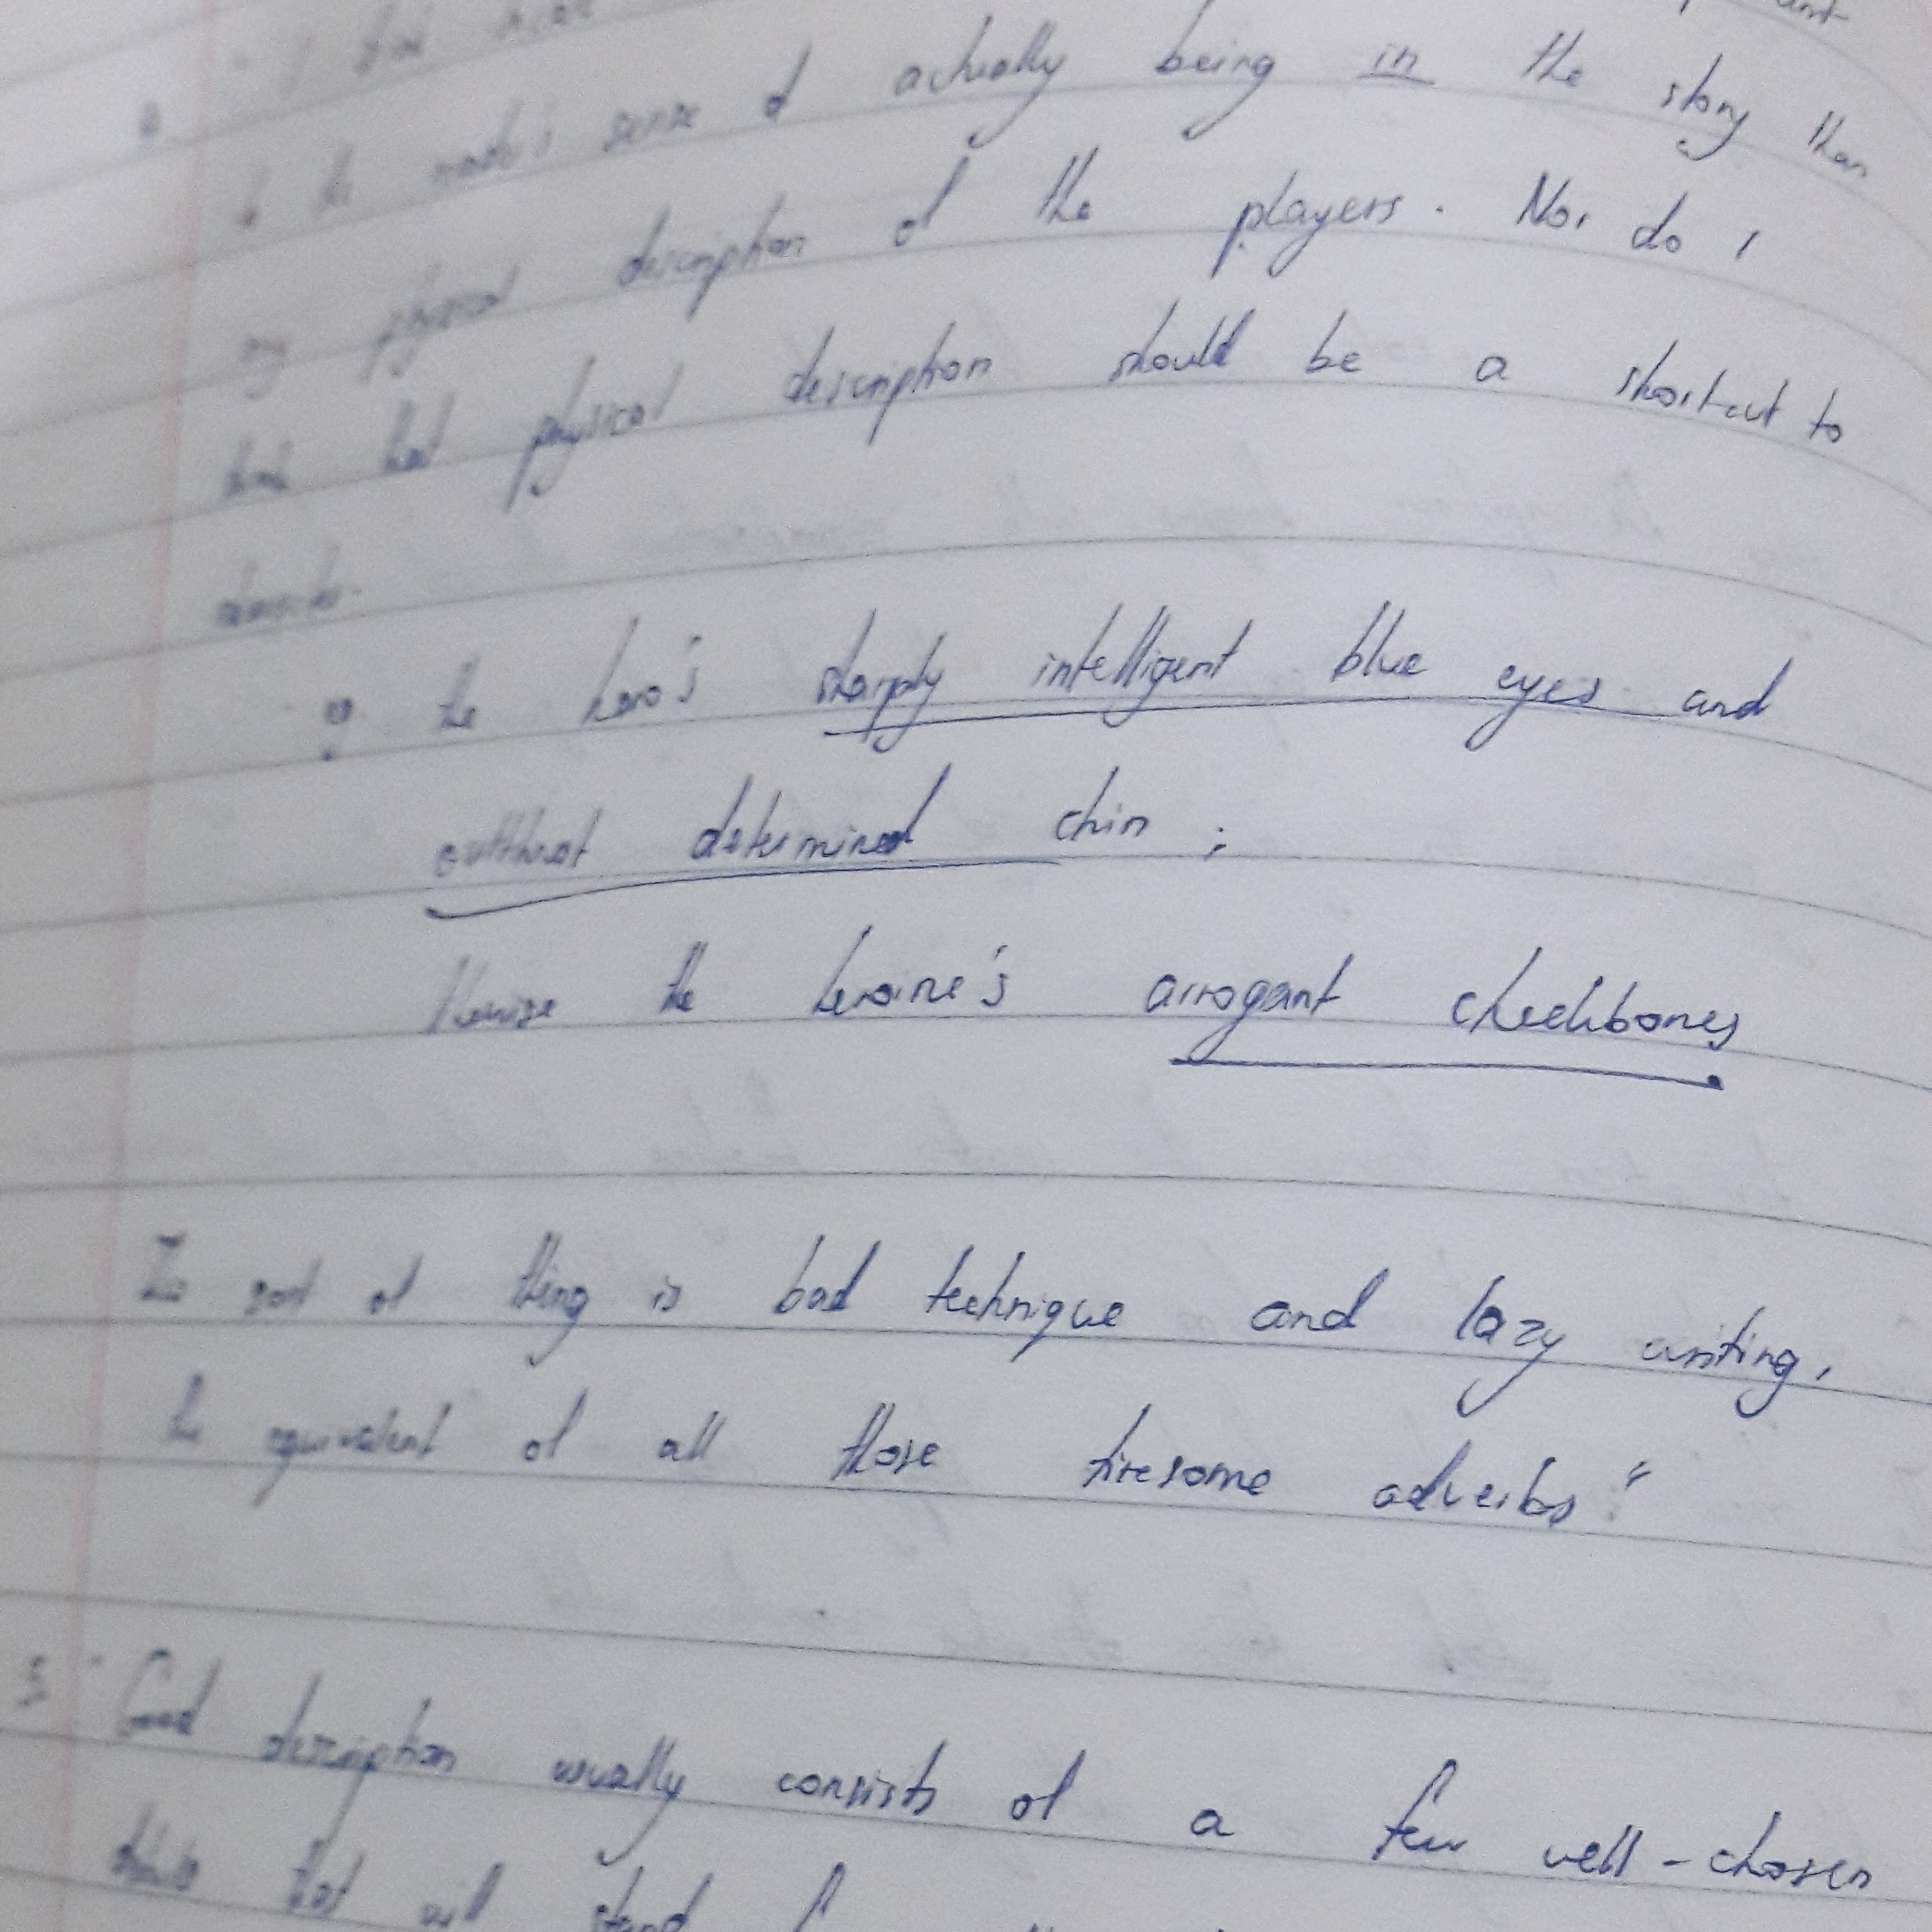 to the reader's sense of actually being in the story than
any physical description of the players. Nor do I
think that physical description should be a shortcut to
character.
eg the hero's sharply intelligent blue eyes and
outthrust determined chin;
likewise the heroine's arrogant cheekbones
sort of thing is bad technique and lazy writing,
the equivalent of all those tiresome adverbs"
Good description usually consists of a few well-chosen
that will stand